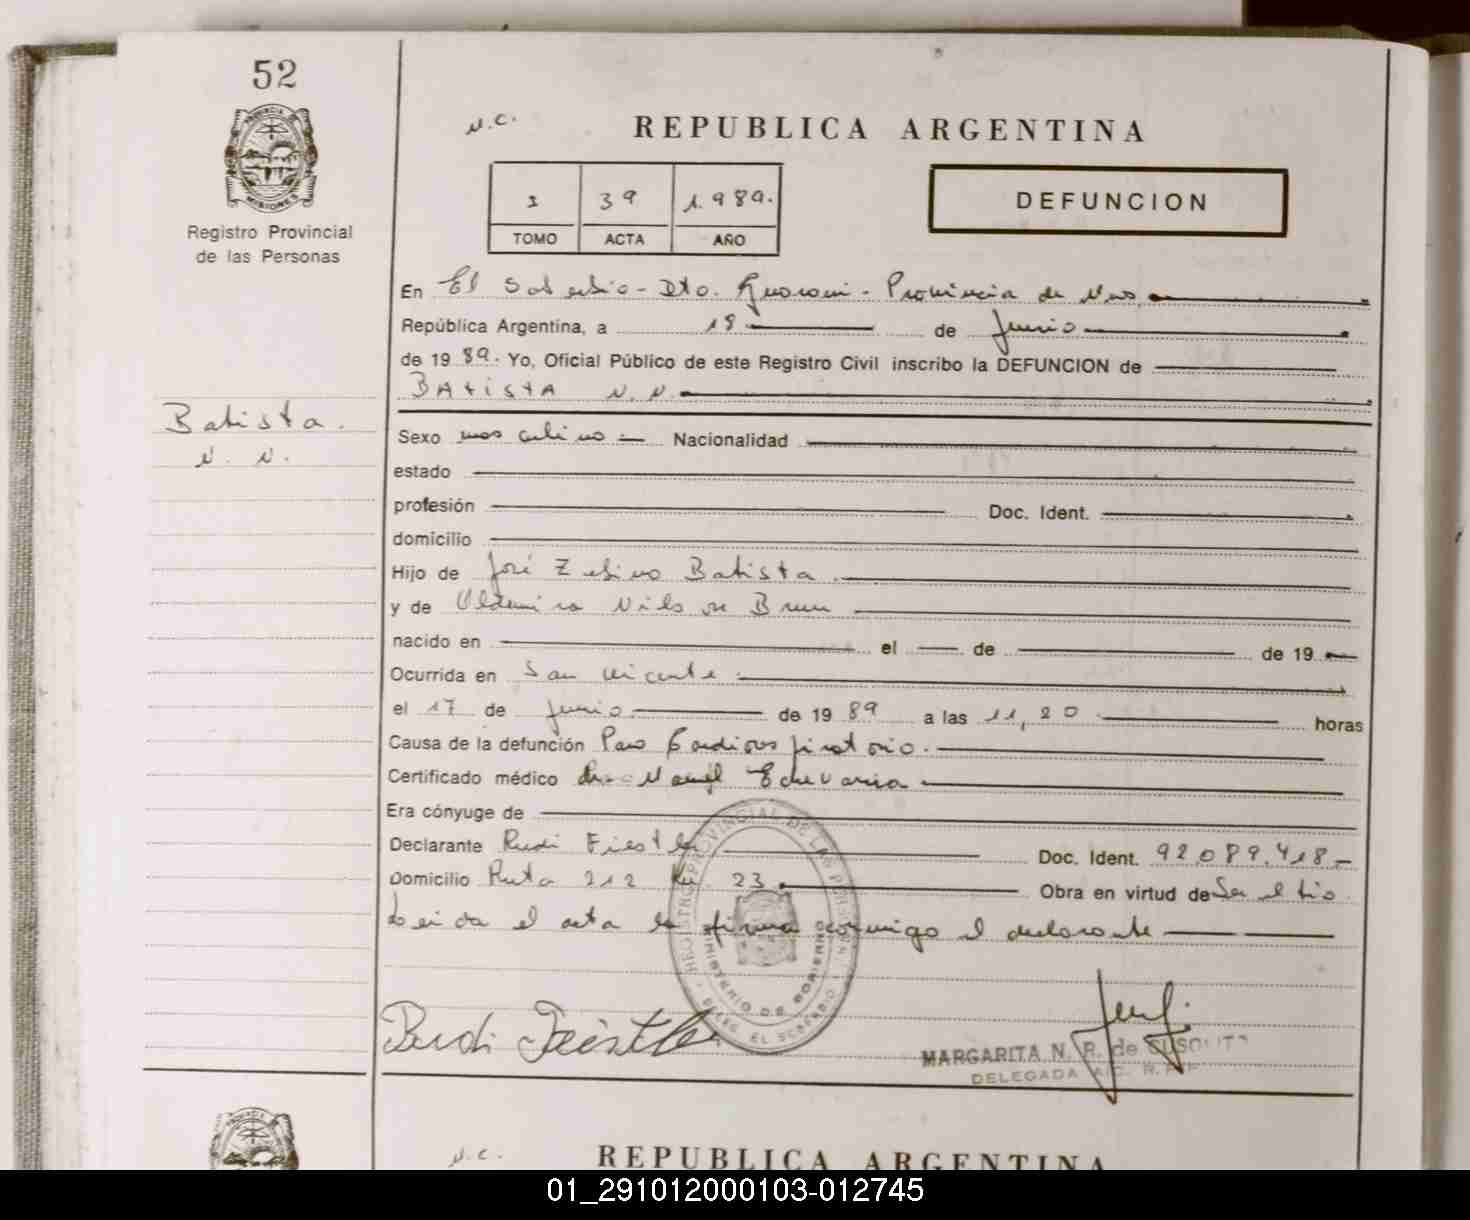 52
PROVINCIA DE
MISIONES
Registro Provincial
de las Personas
N.C.
REPUBLICA ARGENTINA
1 39 1.989.
TOMO ACTA AÑO
DEFUNCION
En El Soberbio - Dto. Guarani - Provincia de Mnes
República Argentina, a 18 de Junio
de 1989. Yo, Oficial Público de este Registro Civil inscribo la DEFUNCION de
BAtistA N.N.
Batista.
N. N.
Sexo masculino Nacionalidad
estado
profesión Doc. Ident.
domicilio
Hijo de José Batista
y de Brun
nacido en el de de 19
Ocurrida en San Vicente
el 17 de Junio de 1989 a las 11,20 horas
Causa de la defunción Paro Cardiorespiratorio.
Certificado médico Echevarria
Era cónyuge de
Declarante Rudi Doc. Ident. 92.089.418
Domicilio Ruta 212 Km. 23 Obra en virtud de
Leida el acta la firma conmigo el declarante
REGISTRO PROVINCIAL DE LAS PERSONAS
MINISTERIO DE GOBIERNO
DELEG. EL SOBERBIO
MARGARITA N. R. de
DELEGADA
N.C.
REPUBLICA ARGENTINA
01_291012000103-012745